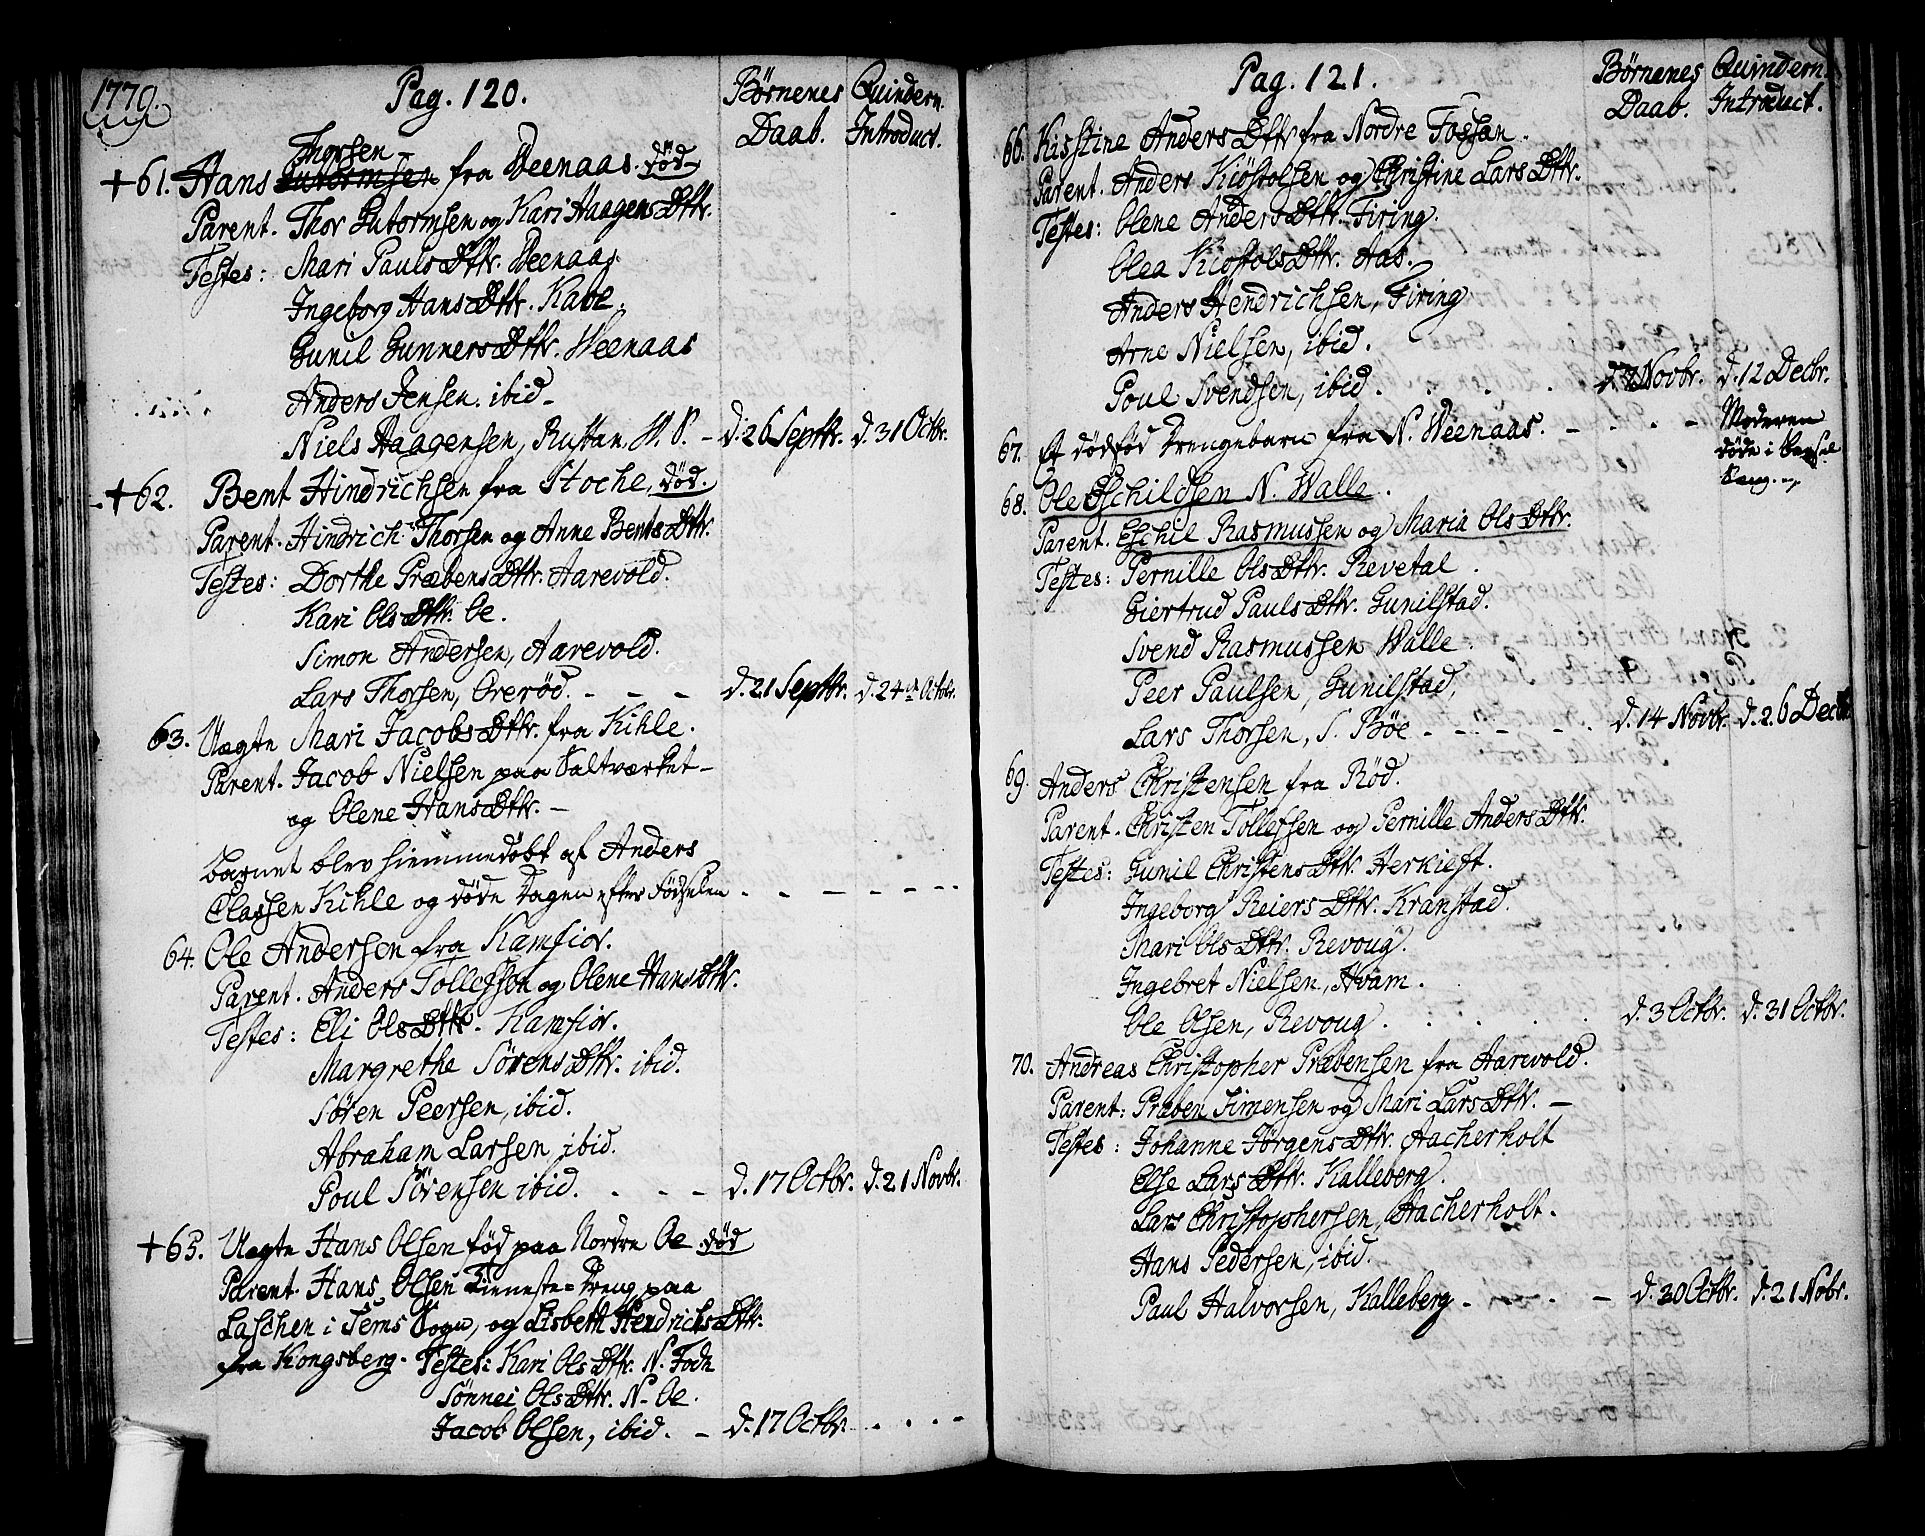 1779.
Pag. 120.
Börnenes Daab.
Quindern. Introduct.
Thorsen
+61. Hans Gutormsen fra Veenaas. død
Parent. Thor Gutormsen og Kari Haagens Dttr.
Testes: Mari Pauls Dttr. Veenaas.
Ingeborg Hans Dttr. Kave.
Gunil Gunners Dttr. Weenaas
Anders Jensen. ibid.
Niels Haagensen, Rustan. H. S. – d. 26 Septbr. d. 31 Octbr.
+62. Bent Hindrichsen fra Stoche, død.
Parent. Hindrich Thorsen og Anne Bents Dttr.
Testes: Dorthe Præbens Dttr. Aarevold.
Kari Ols Dttr. Oe.
Simon Andersen, Aarevold.
Lars Thorsen, Orerød. – – – d. 21 Septbr. d. 24de Octobr.
63. Uægte Mari Jacobs Dttr. fra Kihle.
Parent. Jacob Nielsen paa Saltværket –
og Olene Hans Dttr. –
Barnet blev hiemmedøbt af Anders
Classen Kihle og døde Dagen efter Fødselen
64. Ole Andersen fra Kamfior.
Parent. Anders Tollefsen og Olene Hans Dttr.
Testes: Eli Ols Dttr. Kamfior.
Margrethe Sörens Dttr. ibid.
Sören Peersen, ibid.
Abraham Larsen, ibid.
Poul Sörensen ibid. . – – d. 17 Octbr. d. 21 Novbr.
+65. Uægte Hans Olsen fød paa Nordre Oe død
Parent. Hans Olsen Tieneste-Dreng paa
Laschen i Sems Sogn, og Lisbeth Hendrichs Dttr.
fra Kongsberg. Testes: Kari Ols Dttr. N. Fode
Sönnei Ols Dttr. N. Oe.
Jacob Olsen, ibid. – d. 17 Octbr.
Pag. 121.
Börnenes Daab.
Quindern. Introduct.
66. Kisstine Anders Dttr fra Nordre Fossan.
Parent. Anders Kiöstolsen og Christine Lars Dttr.
Testes: Olene Anders Dttr. Firing.
Olea Kiöstols Dttr. Aas.
Anders Hendrichsen, Firing
Arne Nielsen, ibid.
Poul Svendsen, ibid. . . . d. 7 Novbr. d. 12 Decbr.
67. Et dødfød Drengebarn fra N. Weenaas. – . . – Moderen
døde i Barsel
Seng.
68. Ole Eschildsen N. Walle.
Parent. Eschil Rasmussen og Maria Ols Dttr.
Testes: Pernille Ols Dttr. Revetal.
Giertrud Pauls Dttr. Gunilstad.
Svend Rasmussen Walle.
Peer Paulsen, Gunilstad,
Lars Thorsen, S. Böe – – – – . d. 14 Novbr. d. 26 Decbr.
69. Anders Christensen fra Röd.
Parent. Christen Tollefsen og Pernille Anders Dttr.
Testes: Gunil Christens Dttr. Herkieft.
Ingeborg Reiers Dttr. Kranstad.
Mari Ols Dttr. Revoug.
Ingebret Nielsen, Hvam.
Ole Olsen, Revoug. . . . . d. 3 Octbr. d. 31 Octbr.
70. Andreas Christopher Præbensen fra Aarevold.
Parent: Præben Simensen og Mari Lars Dttr. –
Testes: Johanne Jörgens Dttr. Aacherholt
Else Lars Dttr. Kalleberg.
Lars Christophersen, Aacherholt.
Hans Pedersen, ibid.
Paul Halvorsen, Kalleberg. – – . – d. 30 Octbr. d. 21 Nobr.